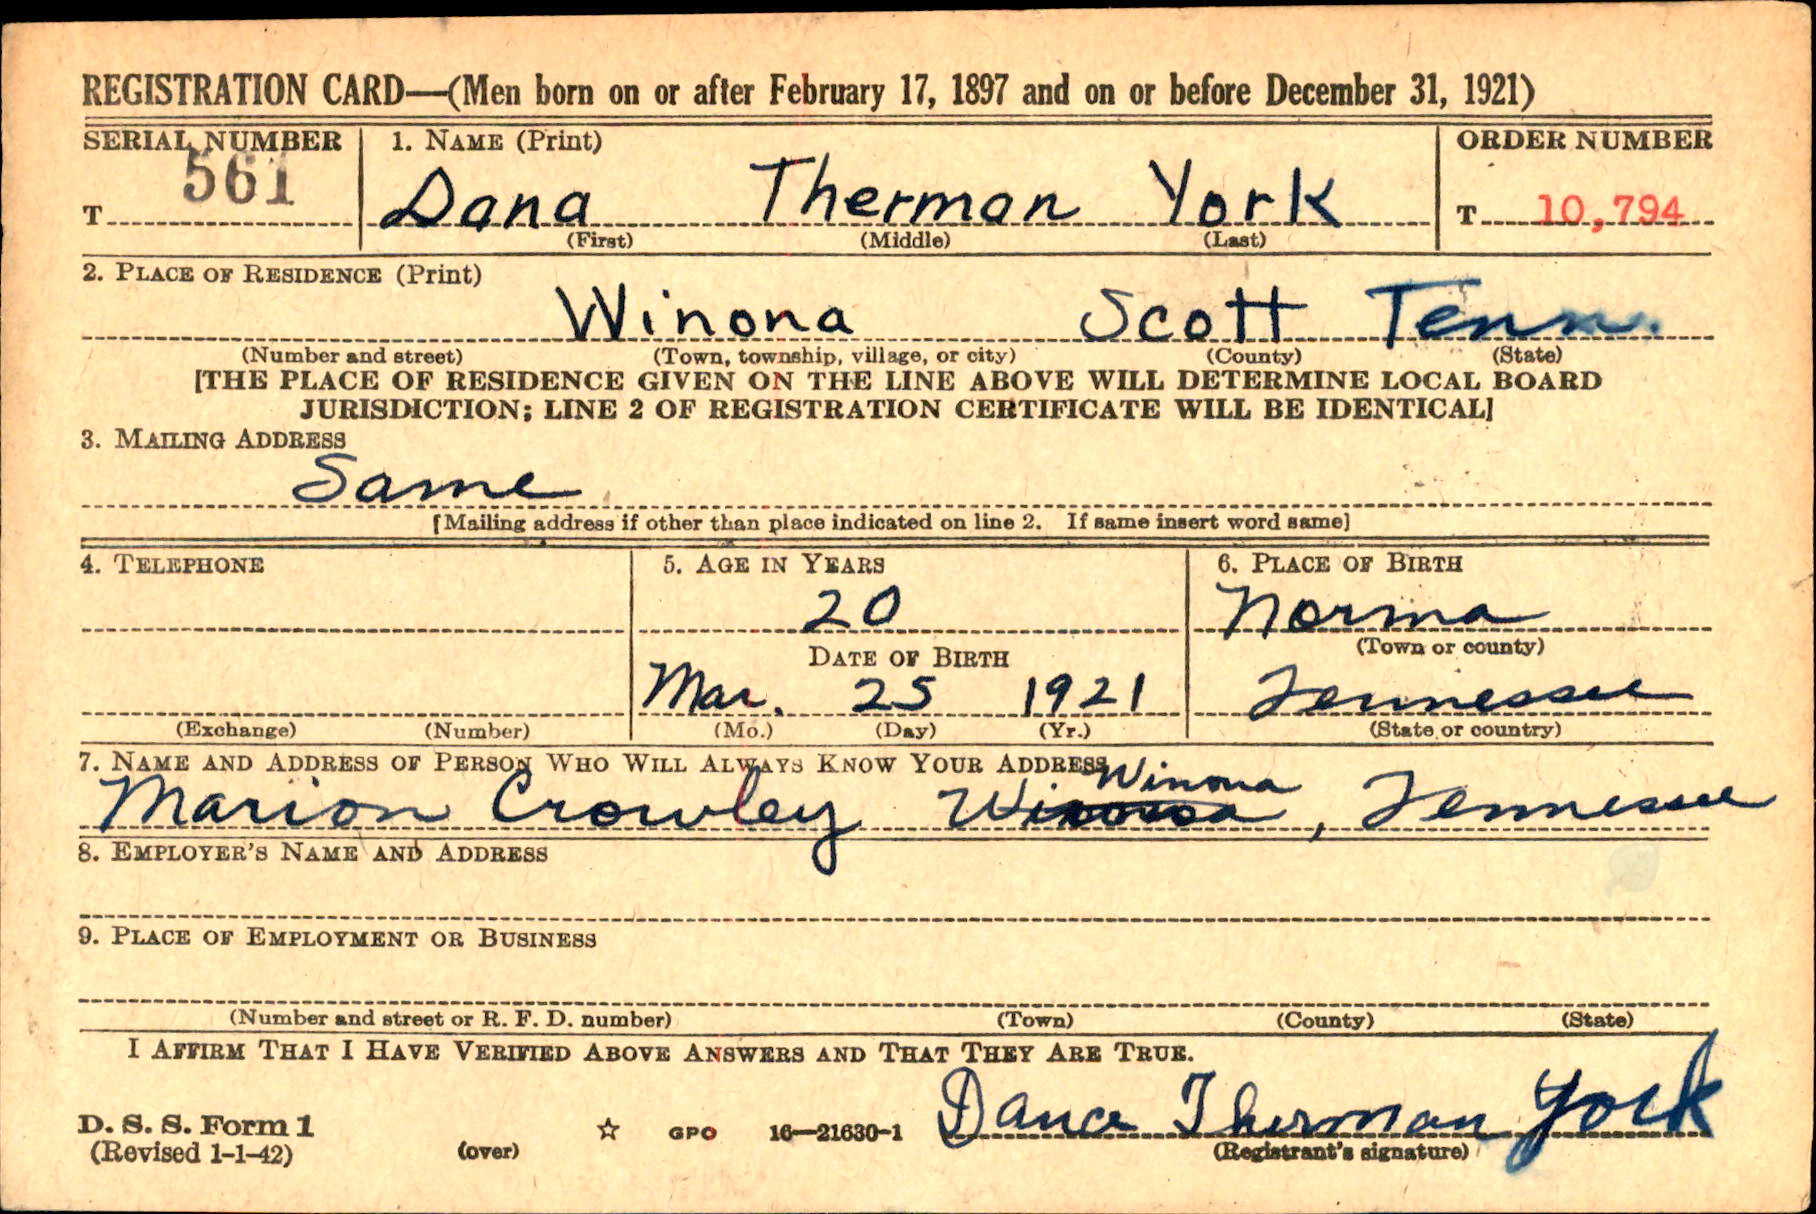 REGISTRATION CARD—(Men born on or after February 17, 1897 and on or before December 31, 1921)
SERIAL NUMBER 1. NAME (Print) ORDER NUMBER
T 561 Dana Therman York T 10,794
(First) (Middle) (Last)
2. PLACE OF RESIDENCE (Print)
Winona Scott Tenn.
(Number and street) (Town, township, village, or city) (County) (State)
[THE PLACE OF RESIDENCE GIVEN ON THE LINE ABOVE WILL DETERMINE LOCAL BOARD
JURISDICTION; LINE 2 OF REGISTRATION CERTIFICATE WILL BE IDENTICAL]
3. MAILING ADDRESS
Same
[Mailing address if other than place indicated on line 2. If same insert word same]
4. TELEPHONE 5. AGE IN YEARS 6. PLACE OF BIRTH
20 Norma
DATE OF BIRTH (Town or county)
Mar. 25 1921 Tennessee
(Exchange) (Number) (Mo.) (Day) (Yr.) (State or country)
7. NAME AND ADDRESS OF PERSON WHO WILL ALWAYS KNOW YOUR ADDRESS
Winona
Marion Crowley , Tennessee
8. EMPLOYER'S NAME AND ADDRESS
9. PLACE OF EMPLOYMENT OR BUSINESS
(Number and street or R. F. D. number) (Town) (County) (State)
I AFFIRM THAT I HAVE VERIFIED ABOVE ANSWERS AND THAT THEY ARE TRUE.
D. S. S. Form 1
(Revised 1-1-42) (over) ☆ GPO 16—21630-1 Therman York
(Registrant's signature)